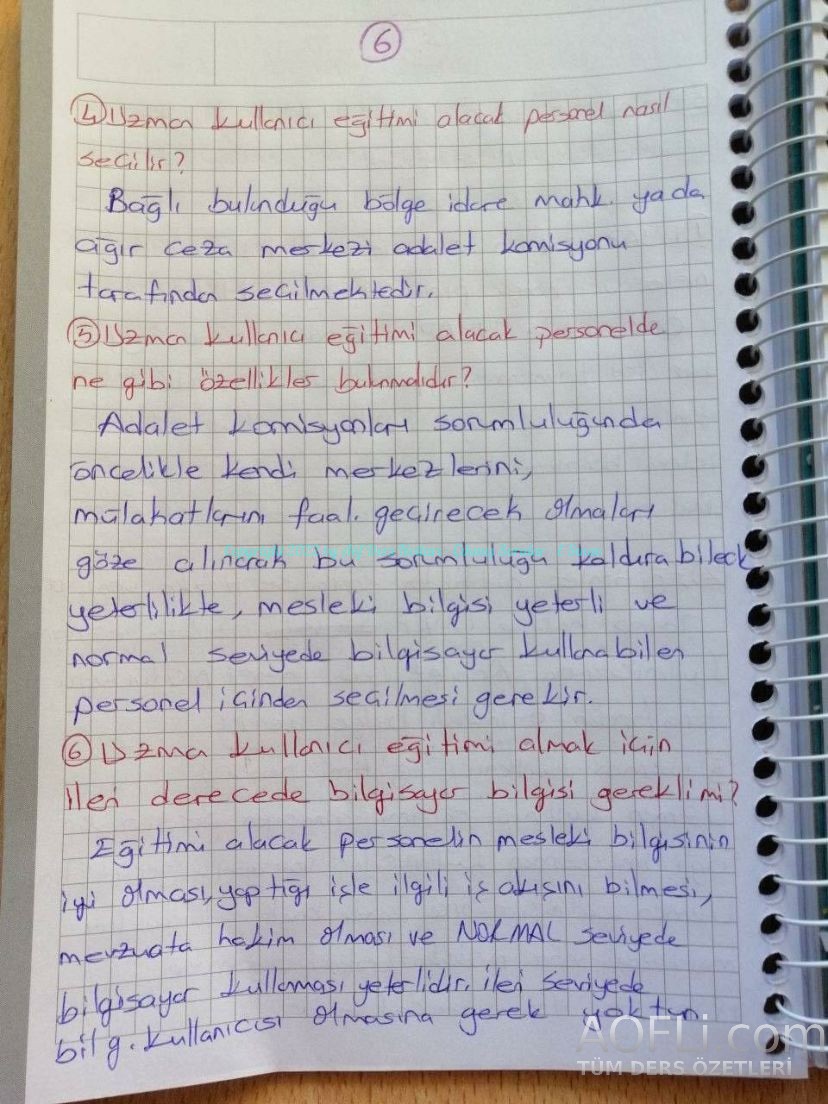 6
4) Uzman kullanıcı eğitimi alacak personel nasıl
seçilir?
Bağlı bulunduğu bölge idare mahk. yada
ağır ceza merkezi adalet komisyonu
tarafından seçilmektedir.
5) Uzman kullanıcı eğitimi alacak personelde
ne gibi özellikler bulunmalıdır?
Adalet komisyonları sorumluluğunda
öncelikle kendi merkezlerini,
mülakatlarını faal. geçirecek olmaları
göze alınarak bu sorumluluğu kaldırabilecek
yeterlilikte, mesleki bilgisi yeterli ve
normal seviyede bilgisayar kullanabilen
personel içinden seçilmesi gerekir.
6) Uzman kullanıcı eğitimi almak için
ileri derecede bilgisayar bilgisi gereklimi?
Eğitimi alacak personelin mesleki bilgisinin
iyi olması, yaptığı işle ilgili iş akışını bilmesi,
mevzuata hakim olması ve NORMAL seviyede
bilgisayar kullanması yeterlidir. ileri seviyede
bilg. kullanıcısı olmasına gerek yoktur.
AÖFLi.com
TÜM DERS ÖZETLERİ